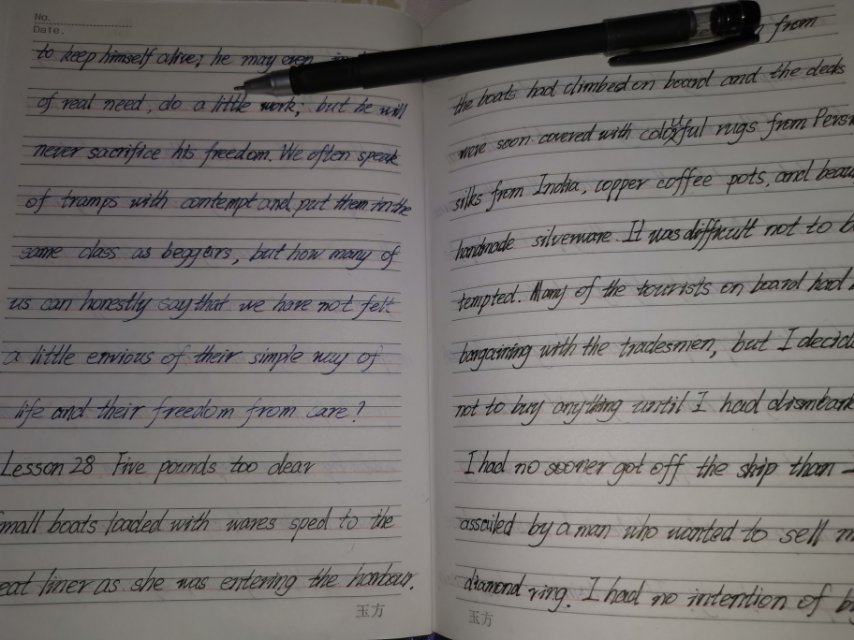 No.
Date.
to keep himself alive; he may even in
of real need, do a little work; but he will
never sacrifice his freedom. We often speak
of tramps with contempt and put them in the
same class as beggars, but how many of
us can honestly say that we have not felt
a little envious of their simple way of
life and their freedom from care?
Lesson 28 Five pounds too dear
mall boats loaded with wares sped to the
eat liner as she was entering the harbour.
玉方
from
the boats had climbed on board and the decks
were soon covered with colourful rugs from Persi
silks from India, copper coffee pots, and beau
handmade silverware. It was difficult not to b
tempted. Many of the tourists on board had
bargaining with the tradesmen, but I decid
not to buy anything until I had disembark
I had no sooner got off the ship than
assailed by a man who wanted to sell m
diamond ring. I had no intention of b
玉方